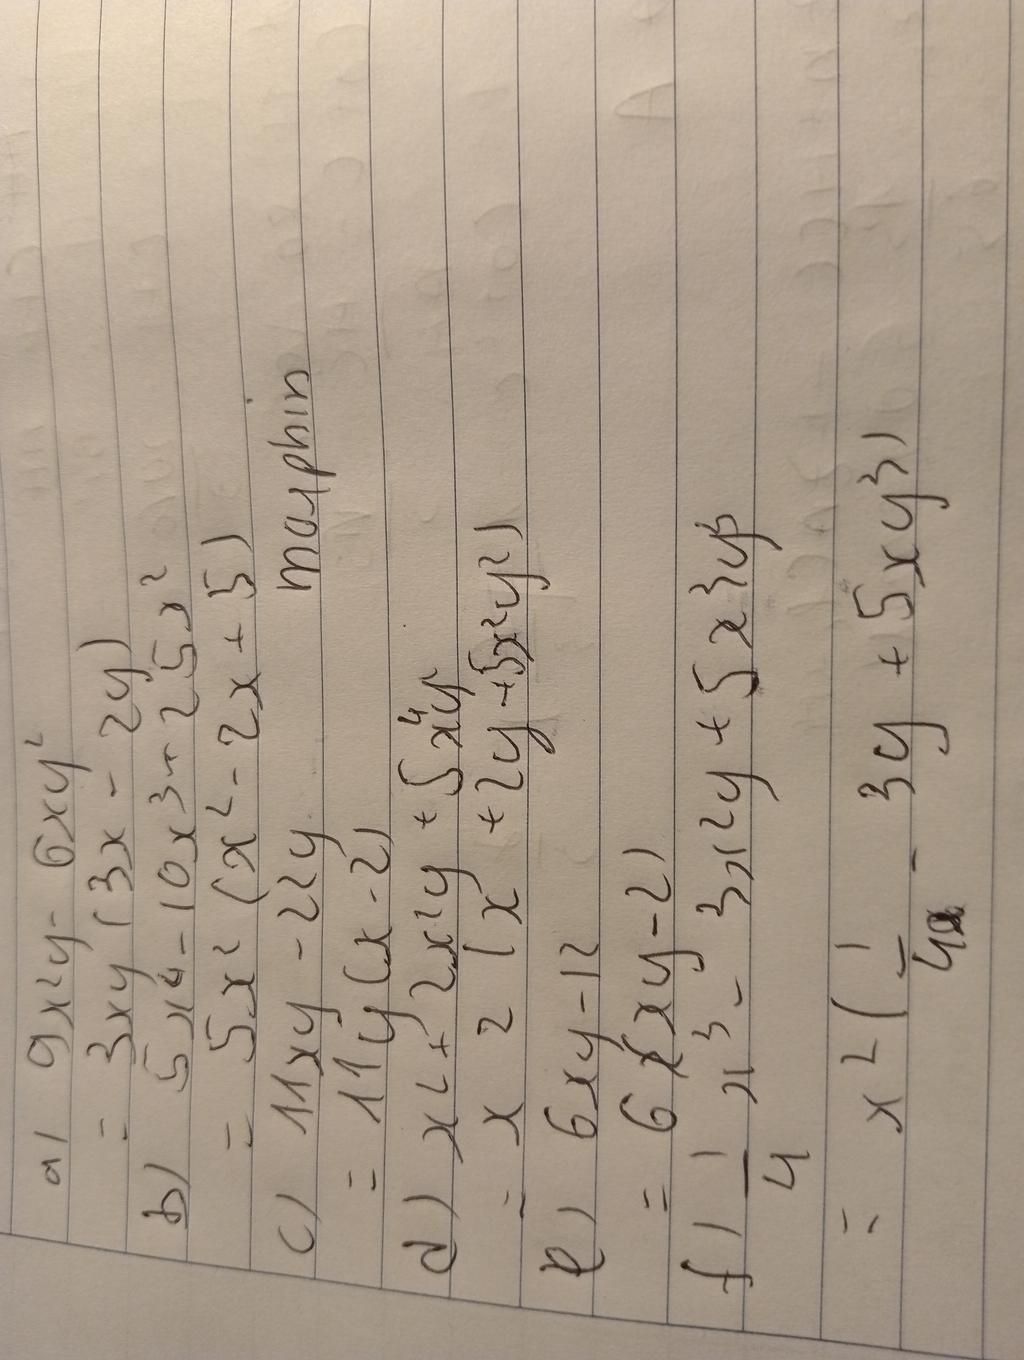 a) 9x²y - 6xy²
= 3xy (3x - 2y)
b) 5x⁴ - 10x³ + 25x²
= 5x² (x² - 2x + 5)
c) 11xy - 22y
morphin
= 11y (x - 2)
d) x² + 2x²y + 5x⁴y
= x² (x + 2y + 5x²y²)
e) 6xy - 12
= 6 (xy - 2)
f) 1/4 x³ - 3x²y + 5x³y³
= x² (1/4 - 3y + 5xy³)